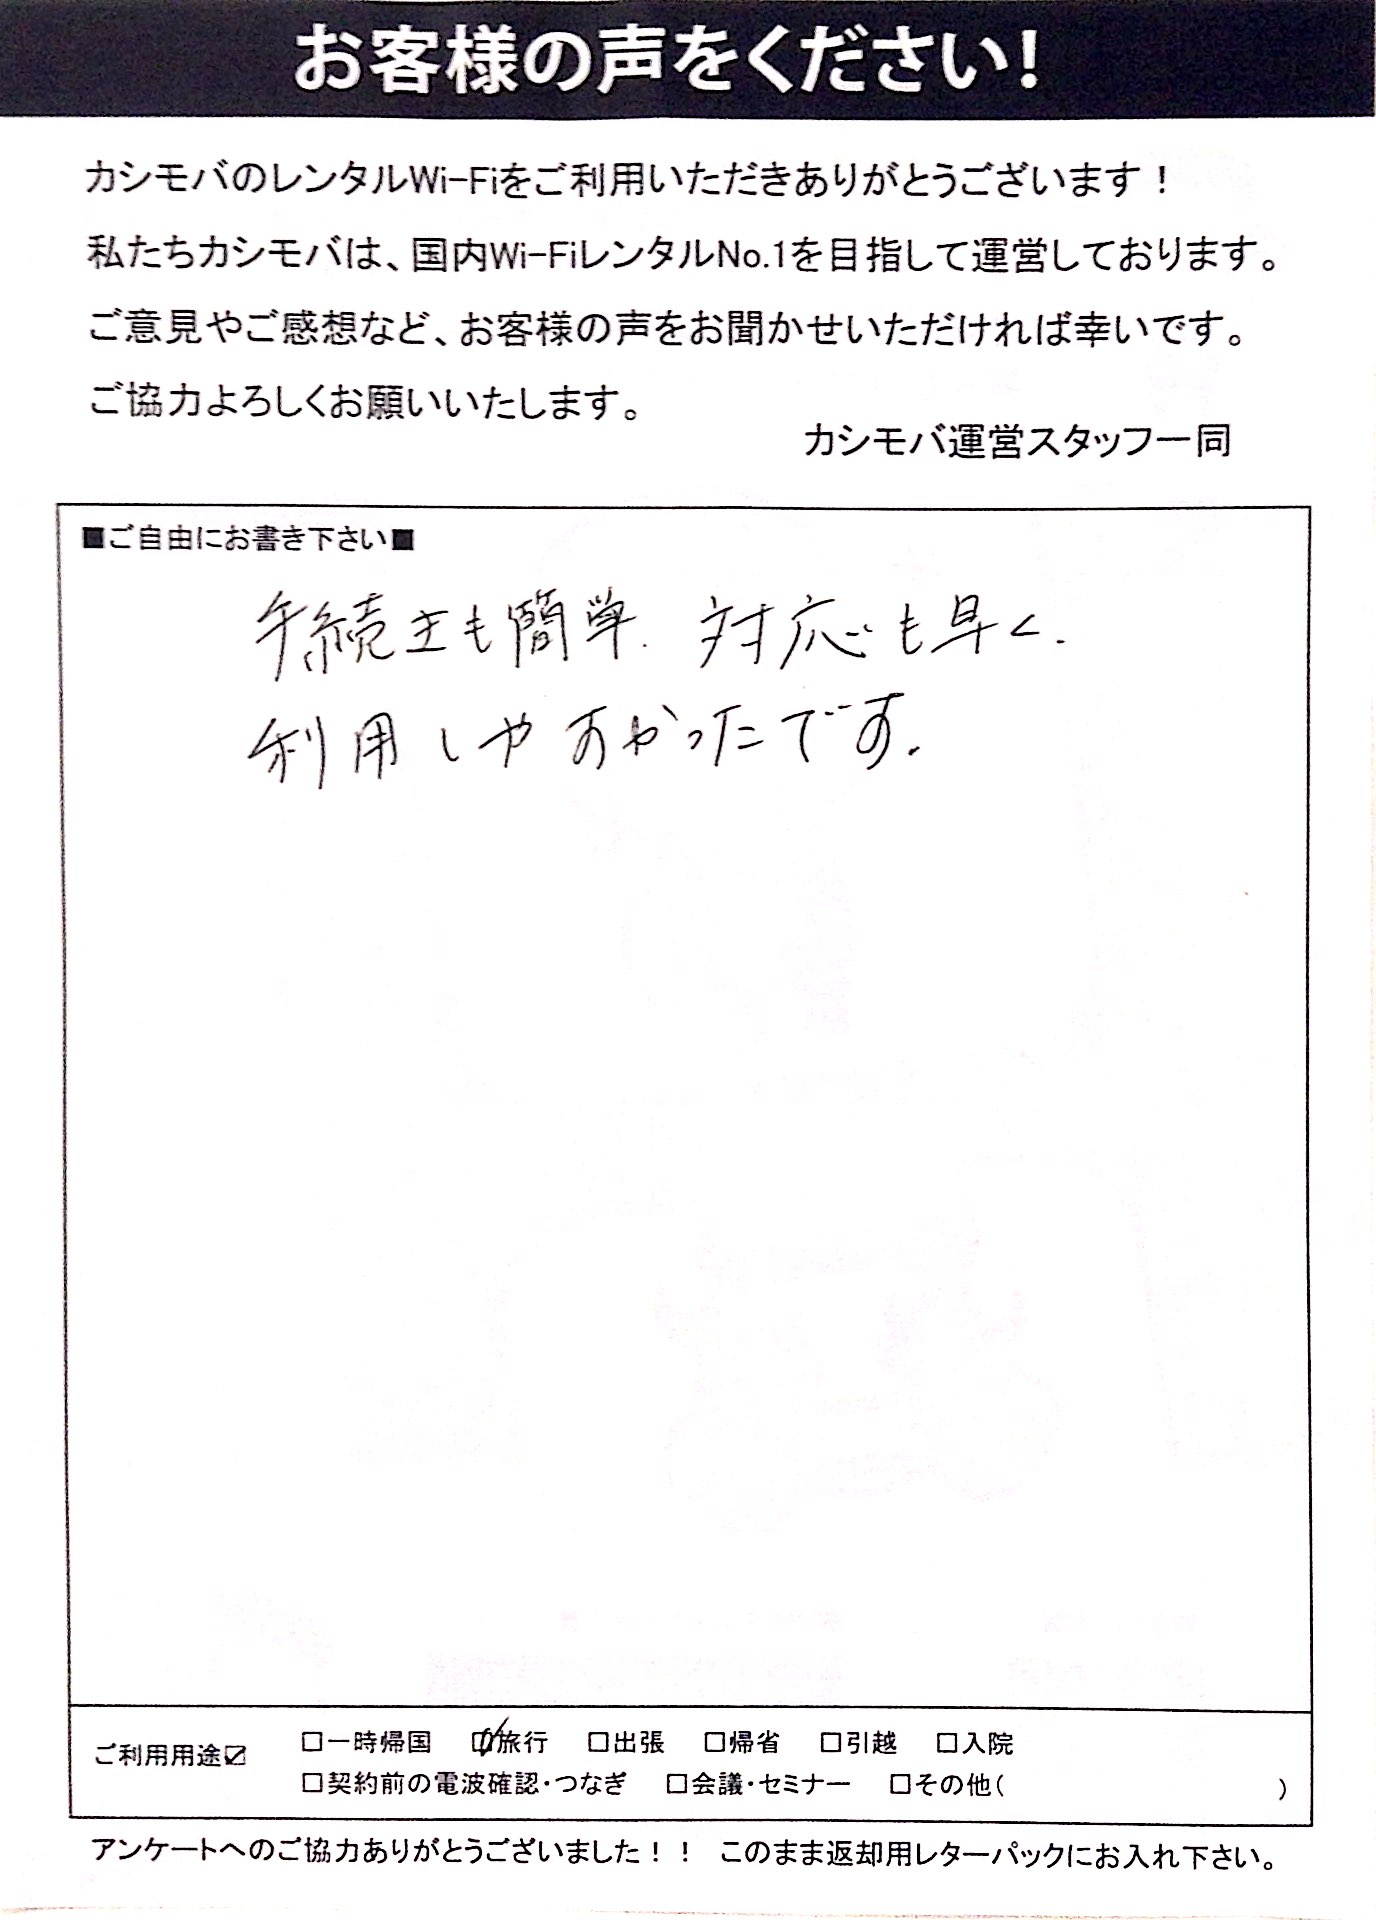 お客様の声をください!
カシモバのレンタルWi-Fiをご利用いただきありがとうございます！
私たちカシモバは、国内Wi-FiレンタルNo.1を目指して運営しております。
ご意見やご感想など、お客様の声をお聞かせいただければ幸いです。
ご協力よろしくお願いいたします。
カシモバ運営スタッフ一同
■ご自由にお書き下さい■
手続きも簡単、対応も早く、
利用しやすかったです。
ご利用用途☑ □一時帰国 ☑旅行 □出張 □帰省 □引越 □入院
□契約前の電波確認・つなぎ □会議・セミナー □その他( )
アンケートへのご協力ありがとうございました！！ このまま返却用レターパックにお入れ下さい。